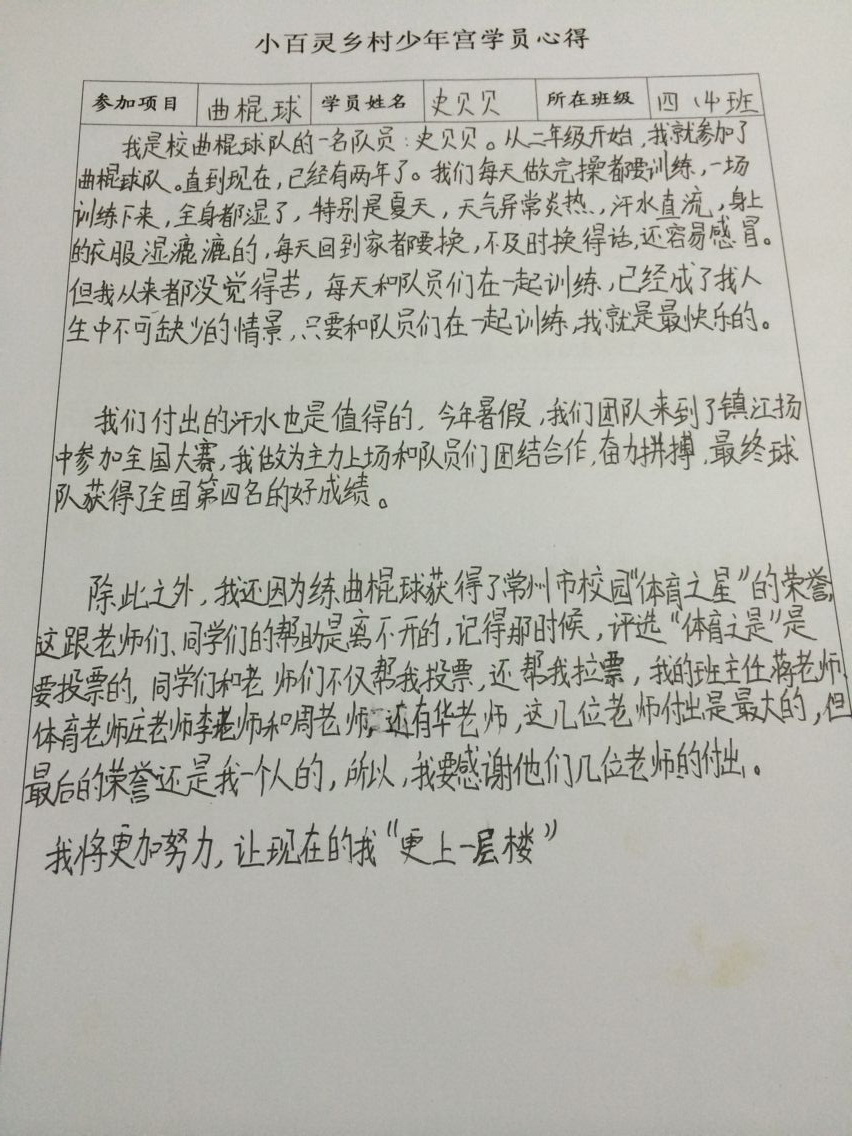 小百灵乡村少年宫学员心得
参加项目 曲棍球 学员姓名 史贝贝 所在班级 四(4班
我是校曲棍球队的一名队员:史贝贝。从二年级开始,我就参加了
曲棍球队。直到现在,已经有两年了。我们每天做完操都要训练,一场
训练下来,全身都湿了,特别是夏天,天气异常炎热,汗水直流,身上
的衣服湿漉漉的,每天回到家都要换,不及时换得话,还容易感冒。
但我从来都没觉得苦,每天和队员们在一起训练,已经成了我人
生中不可缺少的情景,只要和队员们在一起训练,我就是最快乐的。
我们付出的汗水也是值得的,今年暑假,我们团队来到了镇江扬
中参加全国大赛,我做为主力上场和队员们团结合作,奋力拼搏,最终球
队获得了全国第四名的好成绩。
除此之外,我还因为练曲棍球获得了常州市校园“体育之星”的荣誉,
这跟老师们、同学们的帮助是离不开的,记得那时候,评选“体育之是”是
要投票的,同学们和老师们不仅帮我投票,还帮我拉票,我的班主任蒋老师、
体育老师庄老师李老师和周老师,还有华老师,这几位老师付出是最大的,但
最后的荣誉还是我一个人的,所以,我要感谢他们几位老师的付出。
我将更加努力,让现在的我“更上一层楼”